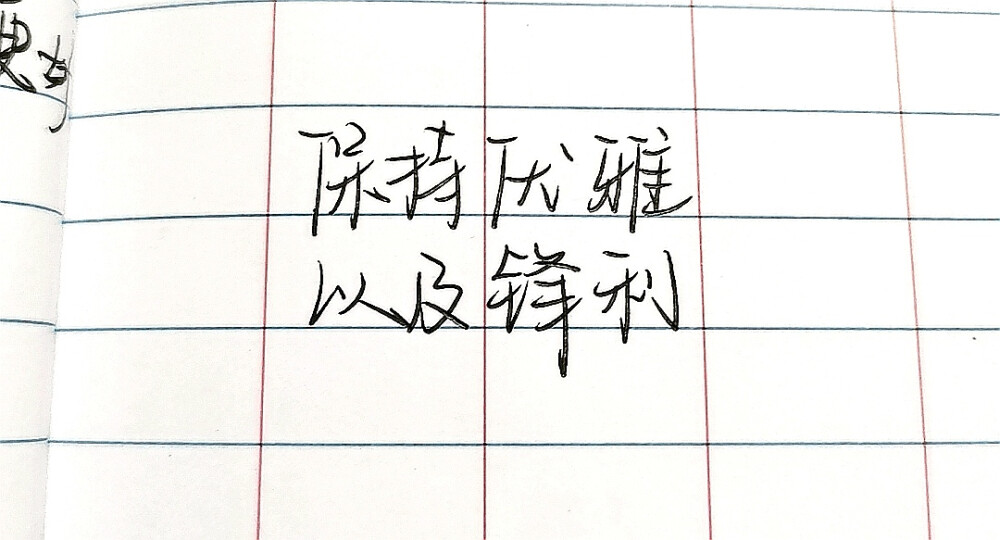 保持优雅
以及锋利